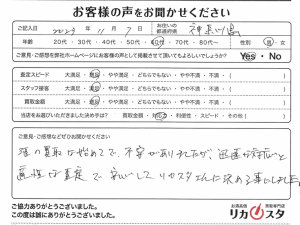 お客様の声をお聞かせください
ご記入日 2023年 11月 7日 お住いの都道府県 神奈川県
年齢 20代・30代・40代・50代・60代・70代・80代〜 性別 男・女
ご意見・ご感想を弊社ホームページにお客様の声として掲載させて頂いてもよろしいでしょうか? Yes・No
査定スピード 大満足・満足・やや満足・どちらでもない・やや不満・不満・( )
スタッフ接客 大満足・満足・やや満足・どちらでもない・やや不満・不満・( )
買取金額 大満足・満足・やや満足・どちらでもない・やや不満・不満・( )
当店をお選びいただきました決め手は? 買取金額・対応・利便性・スピード・その他( )
ご意見・ご感想などぜひお聞かせください
の買取は始めてで、不安がありましたが、迅速な対応と
適切な査定で安心してリカスタさんに決める事にしました。
ご協力ありがとうございました。
この度は誠にありがとうございました。
お酒高価買取専門店
リカスタ